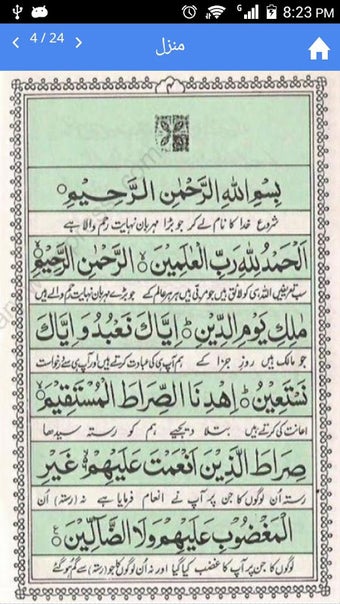 8:23 PM
4 / 24
منزل
بِسْمِ اللهِ الرَّحْمٰنِ الرَّحِيْمِ
شروع خدا کا نام لے کر جو بڑا مہربان نہایت رحم والا ہے
اَلْحَمْدُ لِلّٰهِ رَبِّ الْعٰلَمِيْنَ ۙ الرَّحْمٰنِ الرَّحِيْمِ ۙ
سب تعریفیں اللہ ہی کو لائق ہیں جو مربی ہیں ہر ہر عالم کے جو بڑے مہربان نہایت رحم والے ہیں
مٰلِكِ يَوْمِ الدِّيْنِ ؕ اِيَّاكَ نَعْبُدُ وَ اِيَّاكَ
جو مالک ہیں روز جزا کے ہم آپ ہی کی عبادت کرتے ہیں اور آپ ہی سے درخواست
نَسْتَعِيْنُ ؕ اِهْدِنَا الصِّرَاطَ الْمُسْتَقِيْمَ ۙ
اعانت کی کرتے ہیں بتلا دیجیے ہم کو رستہ سیدھا
صِرَاطَ الَّذِيْنَ اَنْعَمْتَ عَلَيْهِمْ ۙ غَيْرِ
رستہ اُن لوگوں کا جن پر آپ نے انعام فرمایا ہے نہ (رستہ) اُن
الْمَغْضُوْبِ عَلَيْهِمْ وَلَا الضَّآلِّيْنَ
لوگوں کا جن پر آپ کا غضب کیا گیا اور نہ اُن لوگوں کا جو (رستہ) سے گم ہو گئے